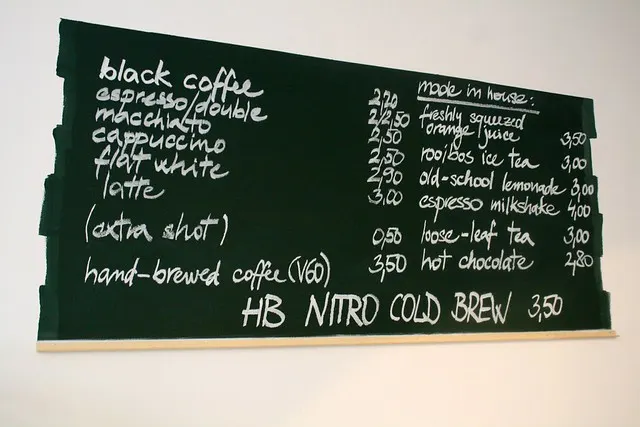 black coffee 2,20
espresso/double 2/2,50
macchiato 2,50
cappuccino 2,50
flat white 2,90
latte 3,00
(extra shot) 0,50
hand-brewed coffee (V60) 3,50
made in house:
freshly squeezed
orange juice 3,50
rooibos ice tea 3,00
old-school lemonade 3,00
espresso milkshake 4,00
loose-leaf tea 3,00
hot chocolate 2,80
HB NITRO COLD BREW 3,50